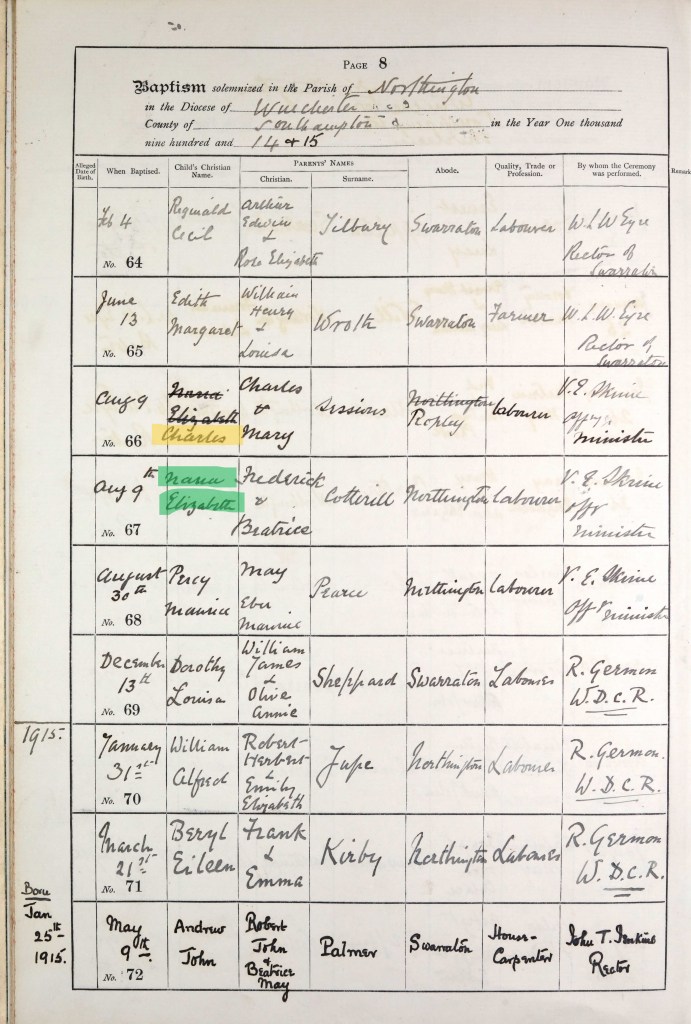 PAGE 8
Baptism solemnized in the Parish of Northington
in the Diocese of Winchester
County of Southampton in the Year One thousand
nine hundred and 14 & 15
Alleged Date of Birth.
When Baptised.
Child's Christian Name.
PARENTS' NAMES
Christian.
Surname.
Abode.
Quality, Trade or Profession.
By whom the Ceremony was performed.
Remark
Feb 4
No. 64
Reginald
Cecil
Arthur
Edwin
&
Rose Elizabeth
Tilbury
Swarraton
Labourer
W.L.W. Eyre
Rector of
Swarraton
June
13
No. 65
Edith
Margaret
William
Henry
&
Louisa
Wroth
Swarraton
Farmer
W.L.W. Eyre
Rector of
Swarraton
Aug 9
No. 66
Elizabeth
Charles
Charles
&
Mary
Sessions
Northington
Ropley
labourer
V. E. Skrine
minister
Aug 9th
No. 67
Elizabeth
Frederick
&
Beatrice
Cotterill
Northington
Labourer
V. E. Skrine
minister
August
30th
No. 68
Percy
Maurice
May
Pearce
Northington
Labourer
V. E. Skrine
minister
December
13th
No. 69
Dorothy
Louisa
William
James
&
Olive
Annie
Sheppard
Swarraton
Labourer
R. Germon
W.D.C.R.
1915.
January
31st
No. 70
William
Alfred
Robert
Herbert
&
Emily
Elizabeth
Jupe
Northington
Labourer
R. Germon.
W.D.C.R.
March
21st
No. 71
Beryl
Eileen
Frank
&
Emma
Kirby
Northington
Labourer
R. Germon
W.D.C.R.
Born
Jan
25th
1915.
May
9th
No. 72
Andrew
John
Robert
John
&
Beatrice
May
Palmer
Swarraton
House-
Carpenter
John T.
Rector